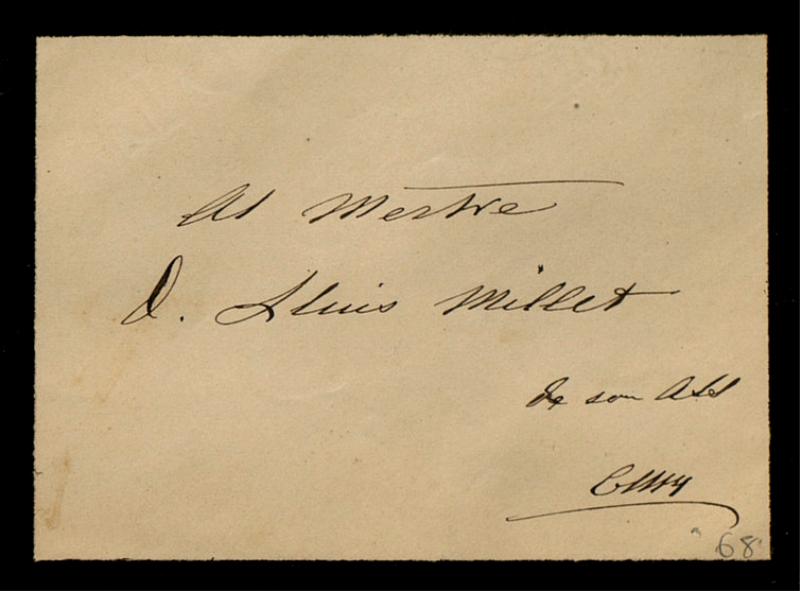 Al Mestre
D. Lluis Millet
de son
68